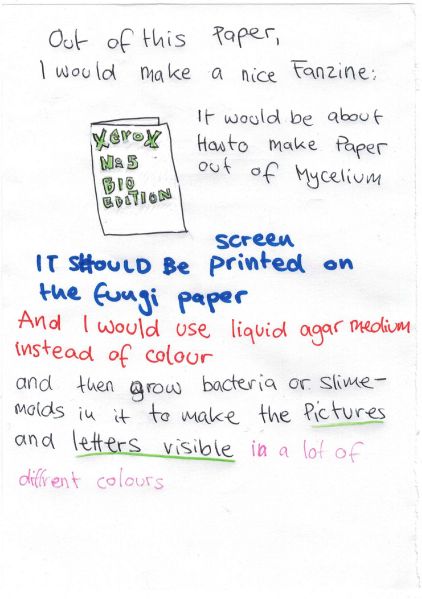 Out of this Paper,
I would make a nice Fanzine:
XeroX
No5
BIO
EDITION
It would be about
Howto make Paper
out of Mycelium
screen
IT SHOULD BE printed on
the fungi paper
And I would use liquid agar medium
instead of colour
and then grow bacteria or slime-
molds in it to make the Pictures
and letters visible in a lot of
diffrent colours